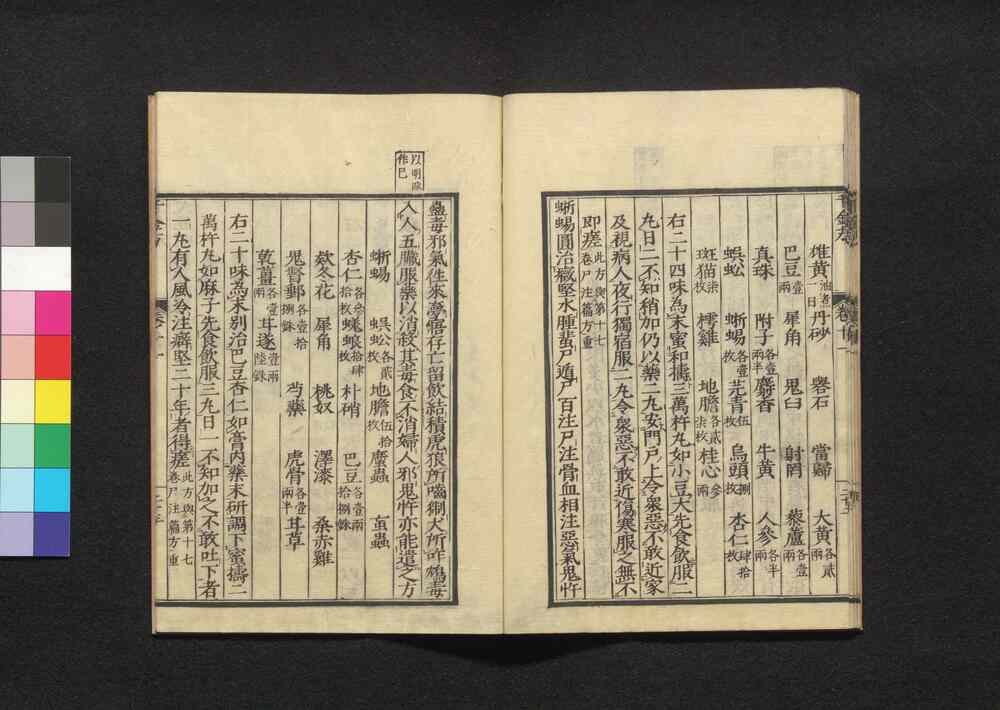 雄黃油煮一日 丹砂 礜石 當歸 大黃各貳兩
巴豆壹兩 犀角 鬼臼 射罔 藜蘆各壹兩
真珠 附子各壹兩半 麝香 牛黃 人參各半兩
蜈蚣 蜥蜴各壹枚 芫青伍枚 烏頭捌枚 杏仁肆拾枚
斑猫柒枚 樗雞 地膽各貳柒枚 桂心參兩
右二十四味為末蜜和擣三萬杵丸如小豆大先食飲服二
丸日二不知稍加仍以藥二丸安門戶上令衆惡不敢近家
及視病人夜行獨宿服二丸令衆惡不敢近傷寒服之無不
即瘥此方與第十七卷尸注篇方重
蜥蜴圓治癥堅水腫蜚尸遁尸百注尸注骨血相注惡氣鬼忤
蠱毒邪氣往來夢寤存亡留飲結積虎狼所嚙猘犬所咋鴆毒
入人五臟服藥以消殺其毒食不消婦人邪鬼忤亦能遣之方
蜥蜴 蜈蚣各貳枚 地膽伍拾枚 䗪蟲 䖟蟲
杏仁各參拾枚 蜣蜋拾肆枚 朴硝 巴豆各壹兩拾捌銖
款冬花 犀角 桃奴 澤漆 桑赤雞
鬼督郵各壹拾捌銖 芍藥 虎骨各壹兩半 甘草
乾薑各壹兩 甘遂壹兩陸銖
右二十味為末別治巴豆杏仁如膏內藥末研調下蜜擣二
萬杵丸如麻子先食飲服三丸日一不知加之不敢吐下者
一丸有人風冷注癖堅二十年者得瘥此方與第十七卷尸注篇方重